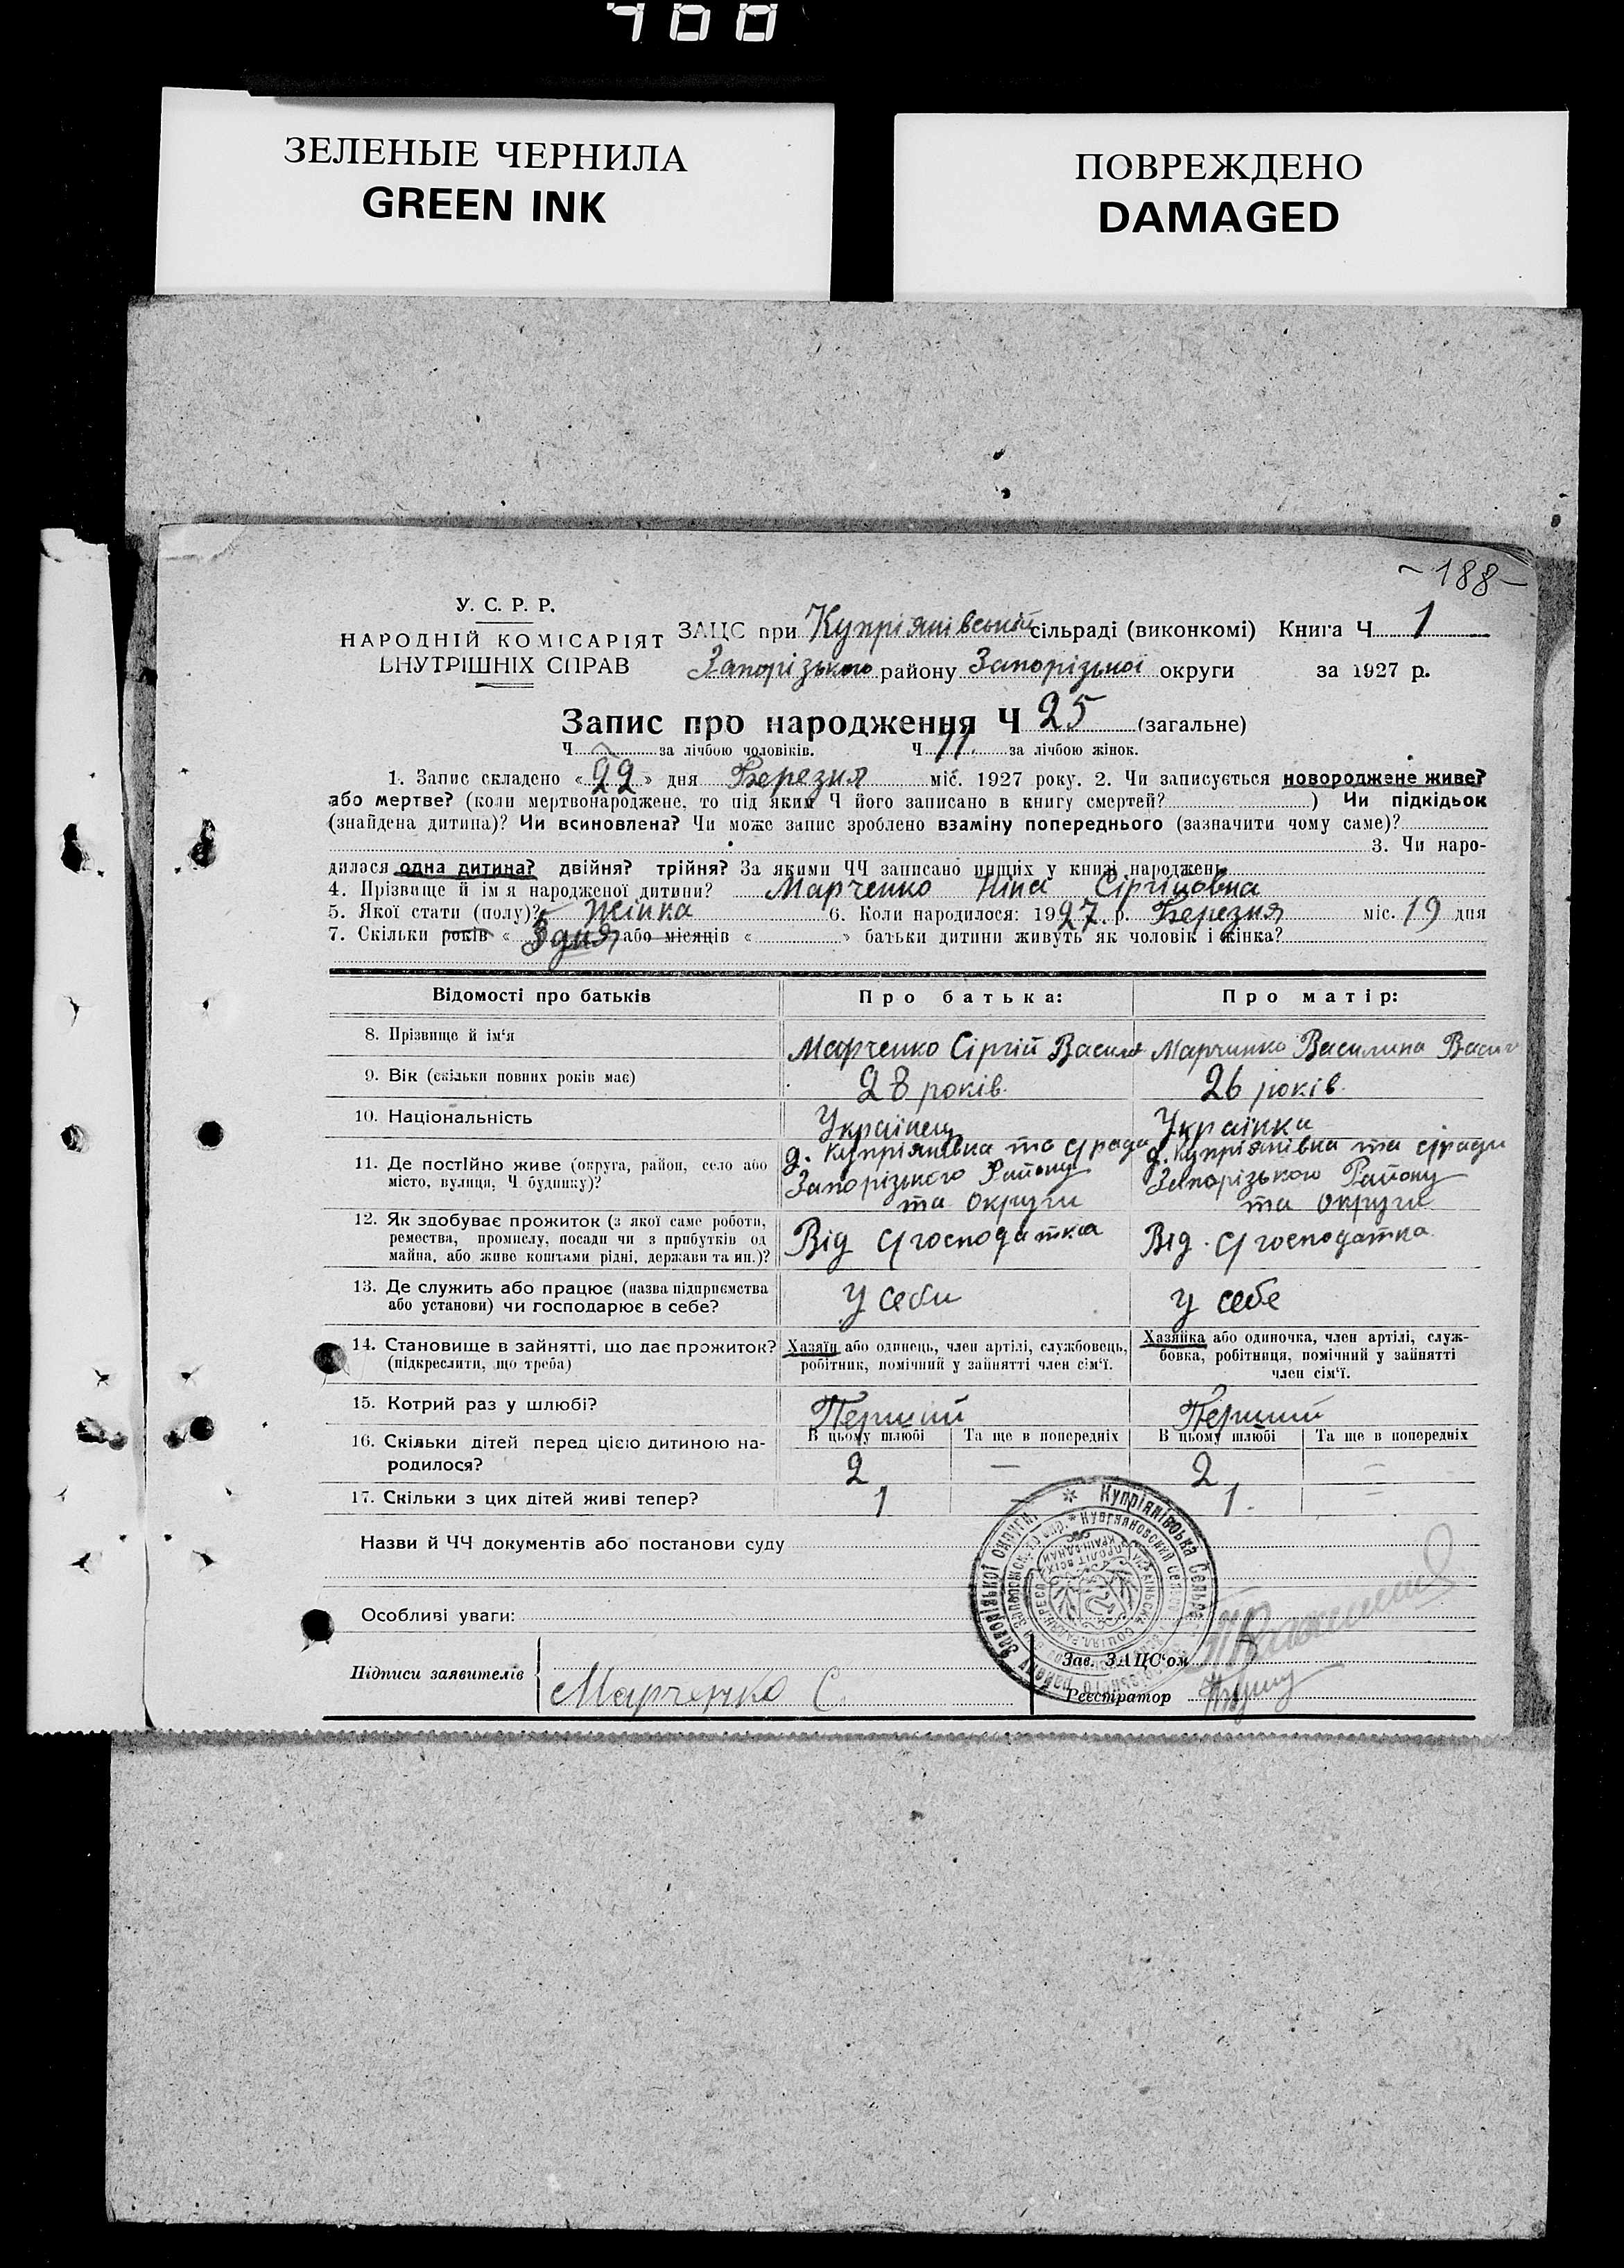 400
ЗЕЛЕНЫЕ ЧЕРНИЛА
GREEN INK
ПОВРЕЖДЕНО
DAMAGED
-188-
У. С. Р. Р.
НАРОДНІЙ КОМІСАРІЯТ
ВНУТРІШНІХ СПРАВ
ЗАЦС при Купріянівській сільраді (виконкомі) Книга Ч 1
Запорізького району Запорізької округи за 1927 р.
Запис про народження Ч 25 (загальне)
Ч за лічбою чоловіків. Ч 11 за лічбою жінок.
1. Запис складено « 22 » дня Березня міс. 1927 року. 2. Чи записується новороджене живе?
або мертве? (коли мертвонароджене, то під яким Ч його записано в книгу смертей? ) Чи підкідьок
(знайдена дитина)? Чи всиновлена? Чи може запис зроблено взаміну попереднього (зазначити чому саме)?
3. Чи наро-
дилося одна дитина? двійня? трійня? За якими ЧЧ записано инших у книзі народжень
4. Прізвище й ім'я народженої дитини? Марченко Ніна Сіргіиовна
5. Якої стати (полу)? Жінка 6. Коли народилося: 1927 р. Березня міс. 19 дня
7. Скільки років « або місяців « » батьки дитини живуть як чоловік і жінка?
Відомості про батьків Про батька: Про матір:
8. Прізвище й ім'я Марченко Сіргій Васил Марчинко Василина Васи
9. Вік (скільки повних років має) 28 років. 26 років.
10. Національність Українец Українка
11. Де постійно живе (округа, район, село або місто, вулиця, Ч будинку)?
д. Купріянівка та с/рада Запорізького Району та округи
д. Купріянівка та с/ради Запорізького Району та округи
12. Як здобуває прожиток (з якої саме роботи, ремества, промислу, посади чи з прибутків од майна, або живе коштами рідні, держави та ин.)?
Від с/господатка Від с/господатка
13. Де служить або працює (назва підприємства або установи) чи господарює в себе?
у себи у себе
14. Становище в зайнятті, що дає прожиток? (підкреслити, що треба)
Хазяїн або одинець, член артілі, службовець, робітник, помічний у зайнятті член сім'ї.
Хазяйка або одиночка, член артілі, служ-бовка, робітниця, помічний у зайнятті член сім'ї.
15. Котрий раз у шлюбі? Перший Перший
В цьому шлюбі Та ще в попередніх В цьому шлюбі Та ще в попередніх
16. Скільки дітей перед цією дитиною на-родилося? 2 — 2 —
17. Скільки з цих дітей живі тепер? 1 — 1. —
Назви й ЧЧ документів або постанови суду
Купріянівська Сельрада
Запорізької округи
Особливі уваги:
Підписи заявителів Марченко С.
Зав. ЗАЦС'ом
Реєстратор